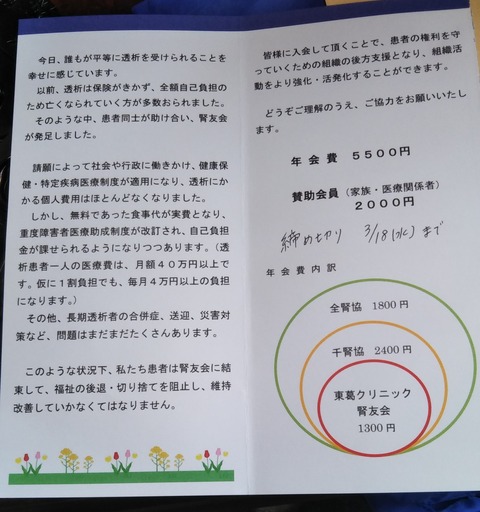 今日、誰もが平等に透析を受けられることを
幸せに感じています。
以前、透析は保険がきかず、全額自己負担の
ため亡くなられていく方が多数おられました。
そのような中、患者同士が助け合い、腎友会
が発足しました。
請願によって社会や行政に働きかけ、健康保
健・特定疾病医療制度が適用になり、透析にか
かる個人費用はほとんどなくなりました。
しかし、無料であった食事代が実費となり、
重度障害者医療助成制度が改訂され、自己負担
金が課せられるようになりつつあります。（透
析患者一人の医療費は、月額４０万円以上で
す。仮に１割負担でも、毎月４万円以上の負担
になります。）
その他、長期透析者の合併症、送迎、災害対
策など、問題はまだまだたくさんあります。
このような状況下、私たち患者は腎友会に結
束して、福祉の後退・切り捨てを阻止し、維持
改善していかなくてはなりません。
皆様に入会して頂くことで、患者の権利を守
っていくための組織の後方支援となり、組織活
動をより強化・活発化することができます。
どうぞご理解のうえ、ご協力をお願いいたし
ます。
年 会 費　５５００円
賛助会員（家族・医療関係者）
２０００円
締め切り 3/18(水)まで
年 会 費 内 訳
全腎協 1800 円
千腎協 2400 円
東葛クリニック
腎友会
1300 円